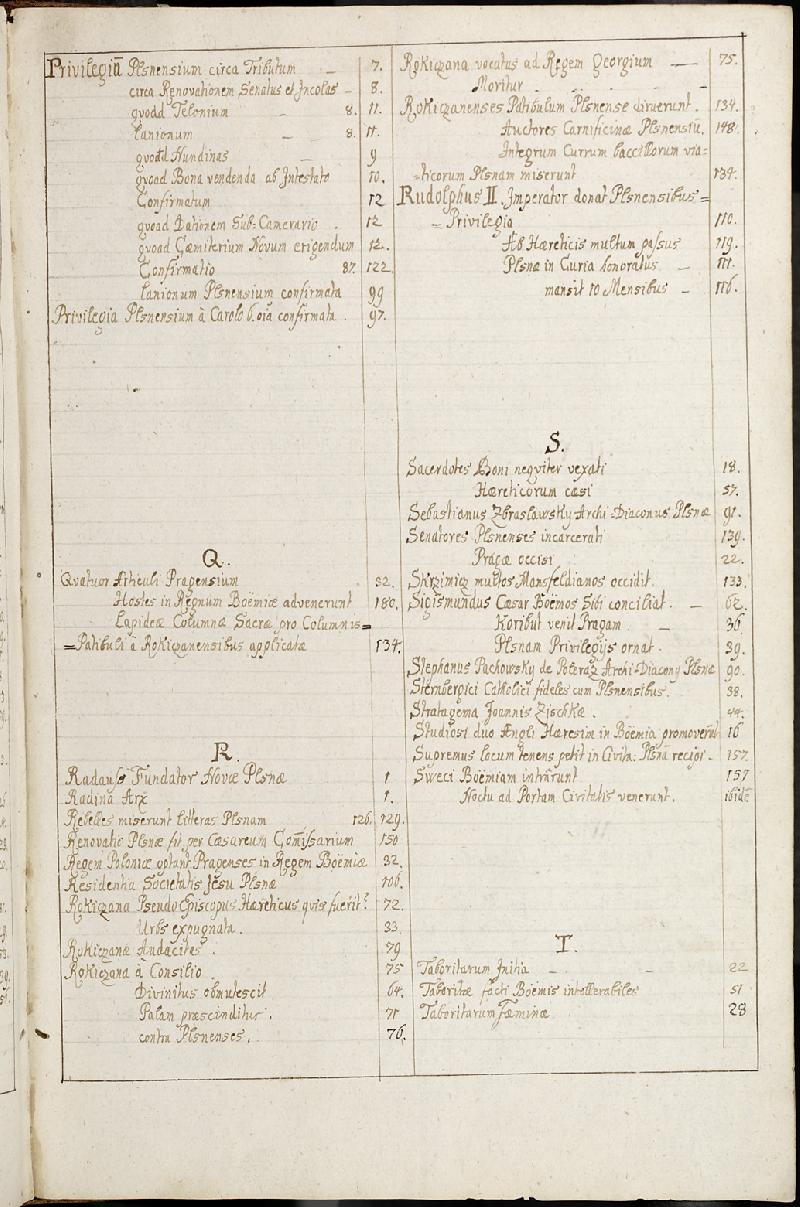 Privilegiū Plsnensium circa Tributum 7.
circa Renovationem Senatus et Incolas 8.
qvoad Telonium 8. 11.
Lanionum 8. 11.
qvoad Nundinas 9
qvoad Bona vendenda ab Intestato 10.
Confirmatum 12
qvoad Dationem Sub-Camerario 12
qvoad Cæmiterium Novum erigendum 12.
Confirmatio 87. 122.
Lanionum Plsnensium confirmata 99
Privilegia Plsnensium à Carolo 6. oīa confirmata. 97.
Q.
Qvatuor Articuli Pragensium 32.
Hostes in Regnum Boëmiæ advenerunt 180.
Lapideæ Columnæ Sacræ pro Columnis=
=Patibuli à Rokiczanensibus applicatæ 134.
R.
Radauß Fundator Novæ Plsnæ 1.
Radina Arx 1.
Rebelles miserunt litteras Plsnam 126. 129.
Renovatio Plsnæ fit per Cæsareum Com̄issarium 150
Regem Poloniæ optant Pragenses in Regem Boëmiæ 32.
Residentia Societatis Jesu Plsnæ 106.
Rokiczana Pseudo Episcopus Hæreticus qvis fuerit? 72.
Urbs expugnata. 33.
Rokiczanæ Audacites. 79
Rokiczana à Consilio 75
Divinitus obmutescit 64.
Palam præscinditur. 71
contra Plsnenses. 76.
Rokiczana vocatus ad Regem Georgium 75.
Moritur
Rokiczanenses Patibulum Plsnense diruerunt. 134.
Auctores Carnificinæ Plsnensiū. 148.
Integrum Currum baccillorum via=
=ticorum Plsnam miserunt 134.
Rudolphus II. Imperator donat Plsnensibus=
=Privilegia 110.
Ab Hæreticis multum passus 119.
Plsnæ in Curia honoratus 111.
mansit 10 Mensibus 116.
S.
Sacerdotes Boni neqviter vexati 18.
Hæreticorum cæsi 57.
Sebastianus Zbraslawsky Archi-Diaconus Plsnæ 91.
Senatores Plsnenses incarcerati 139.
Pragæ occisi 22.
Skrzimicz multos Mansfeldianos occidit. 133.
Sigismundus Cæsar Boëmos Sibi conciliat. 62.
Koribut venit Pragam 36.
Plsnam Privilegijs ornat. 39.
Stephanus Pachowsky de Archi-Diacony Plsnæ 90.
Sternbergici Catholici fideles cum Plsnensibus. 38.
Stratagema Joannis Zischkæ. 44.
Studiosi duo Angli Hæresim in Boëmia promoverūt 16
Supremus locum tenens petit in Civita: Plsnā recipi. 157.
Sweci Boëmiam intrârunt 157
Noctu ad Portam Civitatis venerunt. ibidē
T.
Taboritarum Initia 22
Taboritæ facti Boëmis intollerabiles 51
Taboritarum Fæminæ 28